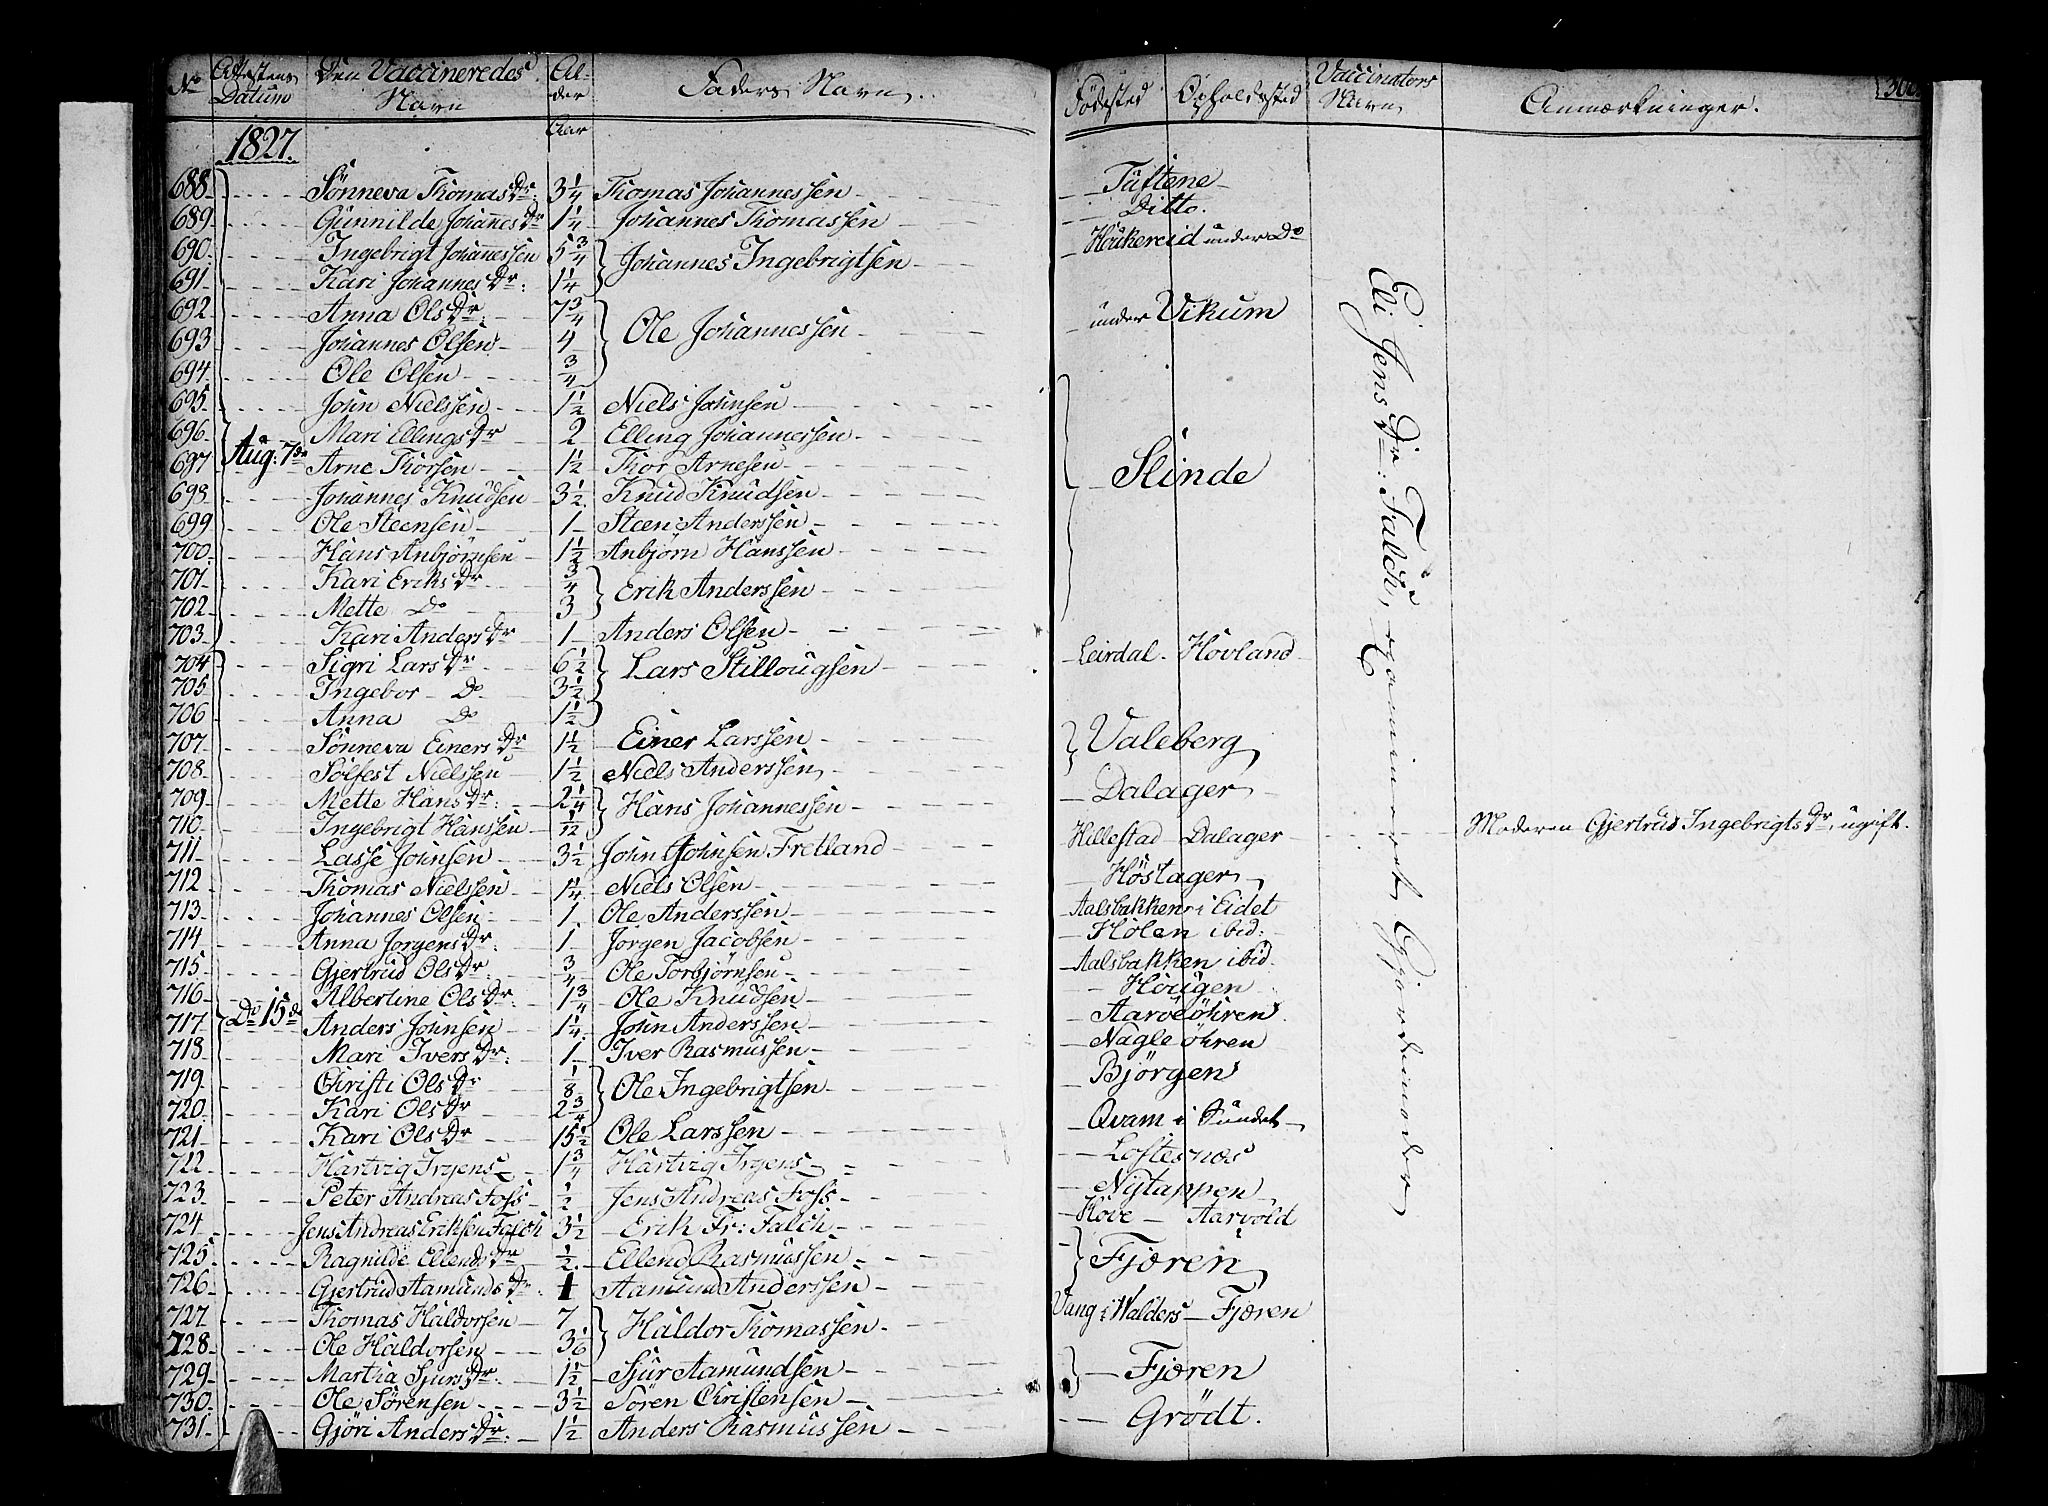 No Attestens Datum Den Vaccineredes Navn Alder Aar Faders Navn. Födested Opholdssted Vaccinators Navn Anmærkninger. 300
1827.
688 Sönneva Thomas Dr: 3 1/4 Thomas Johannessen Tuftene
689 Gunnilde Johannes Dr 1 1/4 Johannes Thomassen Ditto.
690 Ingebrigt Johannessen 5 3/4 } Johannes Ingebrigtsen Houkereid under Do
691 Kari Johannes Dr: 1 1/4
692 Anna Ols Dr: 7 3/4 } Ole Johannessen under Vikum
693 Johannes Olsen 4
694 Ole Olsen 3/4
695 John Nielssen 1 1/2 Niels Johnsen
696 Mari Ellings Dr 2 Elling Johannessen
697 Aug: 7de Arne Thorsen 1 1/2 Thor Arnesen Slinde
698 Johannes Knudsen 3 1/2 Knud Knudsen
699 Ole Steensen 1 Steen Anderssen
700 Hans Anbjörnsen 1 1/2 Anbjörn Hanssen
701 Kari Eriks Dr 3/4 } Erik Anderssen
702 Mette Do 3
703 Kari Anders Dr 1 Anders Olsen
704 Sigri Lars Dr 6 1/2 } Lars Stillougsen Leirdal Hovland
705 Ingebor Do 3 1/2
706 Anna Do 1 1/2
707 Sönneva Einers Dr 1 1/2 Einer Larssen } Valeberg
708 Sölfest Nielssen 1 1/2 Niels Anderssen
709 Mette Hans Dr: 2 1/4 } Hans Johannessen Dalager
710 Ingebrigt Hanssen 1/12 Hillestad Dalager Moderen Gjertrud Ingebrigts Dr, ugift.
711 Lasse Johnsen 3 1/2 John Johnsen Fretland
712 Thomas Nielssen 1 1/4 Niels Olsen Höstager
713 Johannes Olsen 1 Ole Anderssen Aalsbakken i Eidet
714 Anna Jörgens Dr: 1 Jörgen Jacobsen Holen ibid:
715 Gjertrud Ols Dr: 3/4 Ole Torbjörnsen Aalsbakken ibid
716 Albertine Ols Dr: 1 3/4 Ole Knudsen Hougen
717 Do 15de Anders Johnsen 1 1/4 John Anderssen Aaröeöhren
718 Mari Ivers Dr: 1 Iver Rasmussen Nagleöhren
719 Christi Ols Dr 1/8 } Ole Ingebrigtsen Björgen
720 Kari Ols Dr 2 3/4
721 Kari Ols Dr 15 1/2 Ole Larssen Qvam i Sundet
722 Hartvig Irgens 1 3/4 Hartvig Irgens Loftesnæs
723 Peter Andreas Foss 1/2 Jens Andreas Foss Nytappen
724 Jens Andreas Eriksen Falch 3 1/2 Erik Fr: Falch Aarvold
725 Ragnilde Ellends Dr 1/2 Ellend Rasmussen } Fjæren
726 Gjertrud Aamunds Dr: 1 Aamund Anderssen
727 Thomas Haldorsen 7 } Haldor Thomassen Vang i Walders Fjæren
728 Ole Haldorsen 3 1/6
729 Martha Sjurs Dr: 1 1/2 Sjur Aamundsen } Fjæren
730 Ole Sörensen 3 1/2 Sören Christensen
731 Gjöri Anders Dr: 1 1/2 Anders Rasmussen Grödt.
Eli Jens Dr: Falch, examineret Gjordemoder